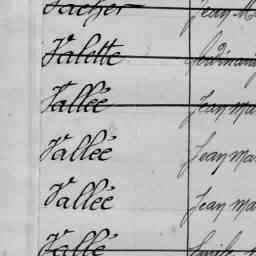 Vacher Jean M
Valette Ferdinand
Vallée Jean ma
Vallée Jean ma
Vallée Jean ma
Vallé Emile